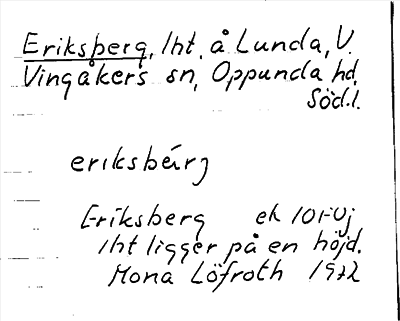 Eriksberg, lht. å Lunda, V.
Vingåkers sn, Oppunda hd,
Söd.l.
eriksbärj
Eriksberg ek 10I-0j
lht ligger på en höjd.
Mona Löfroth 1922